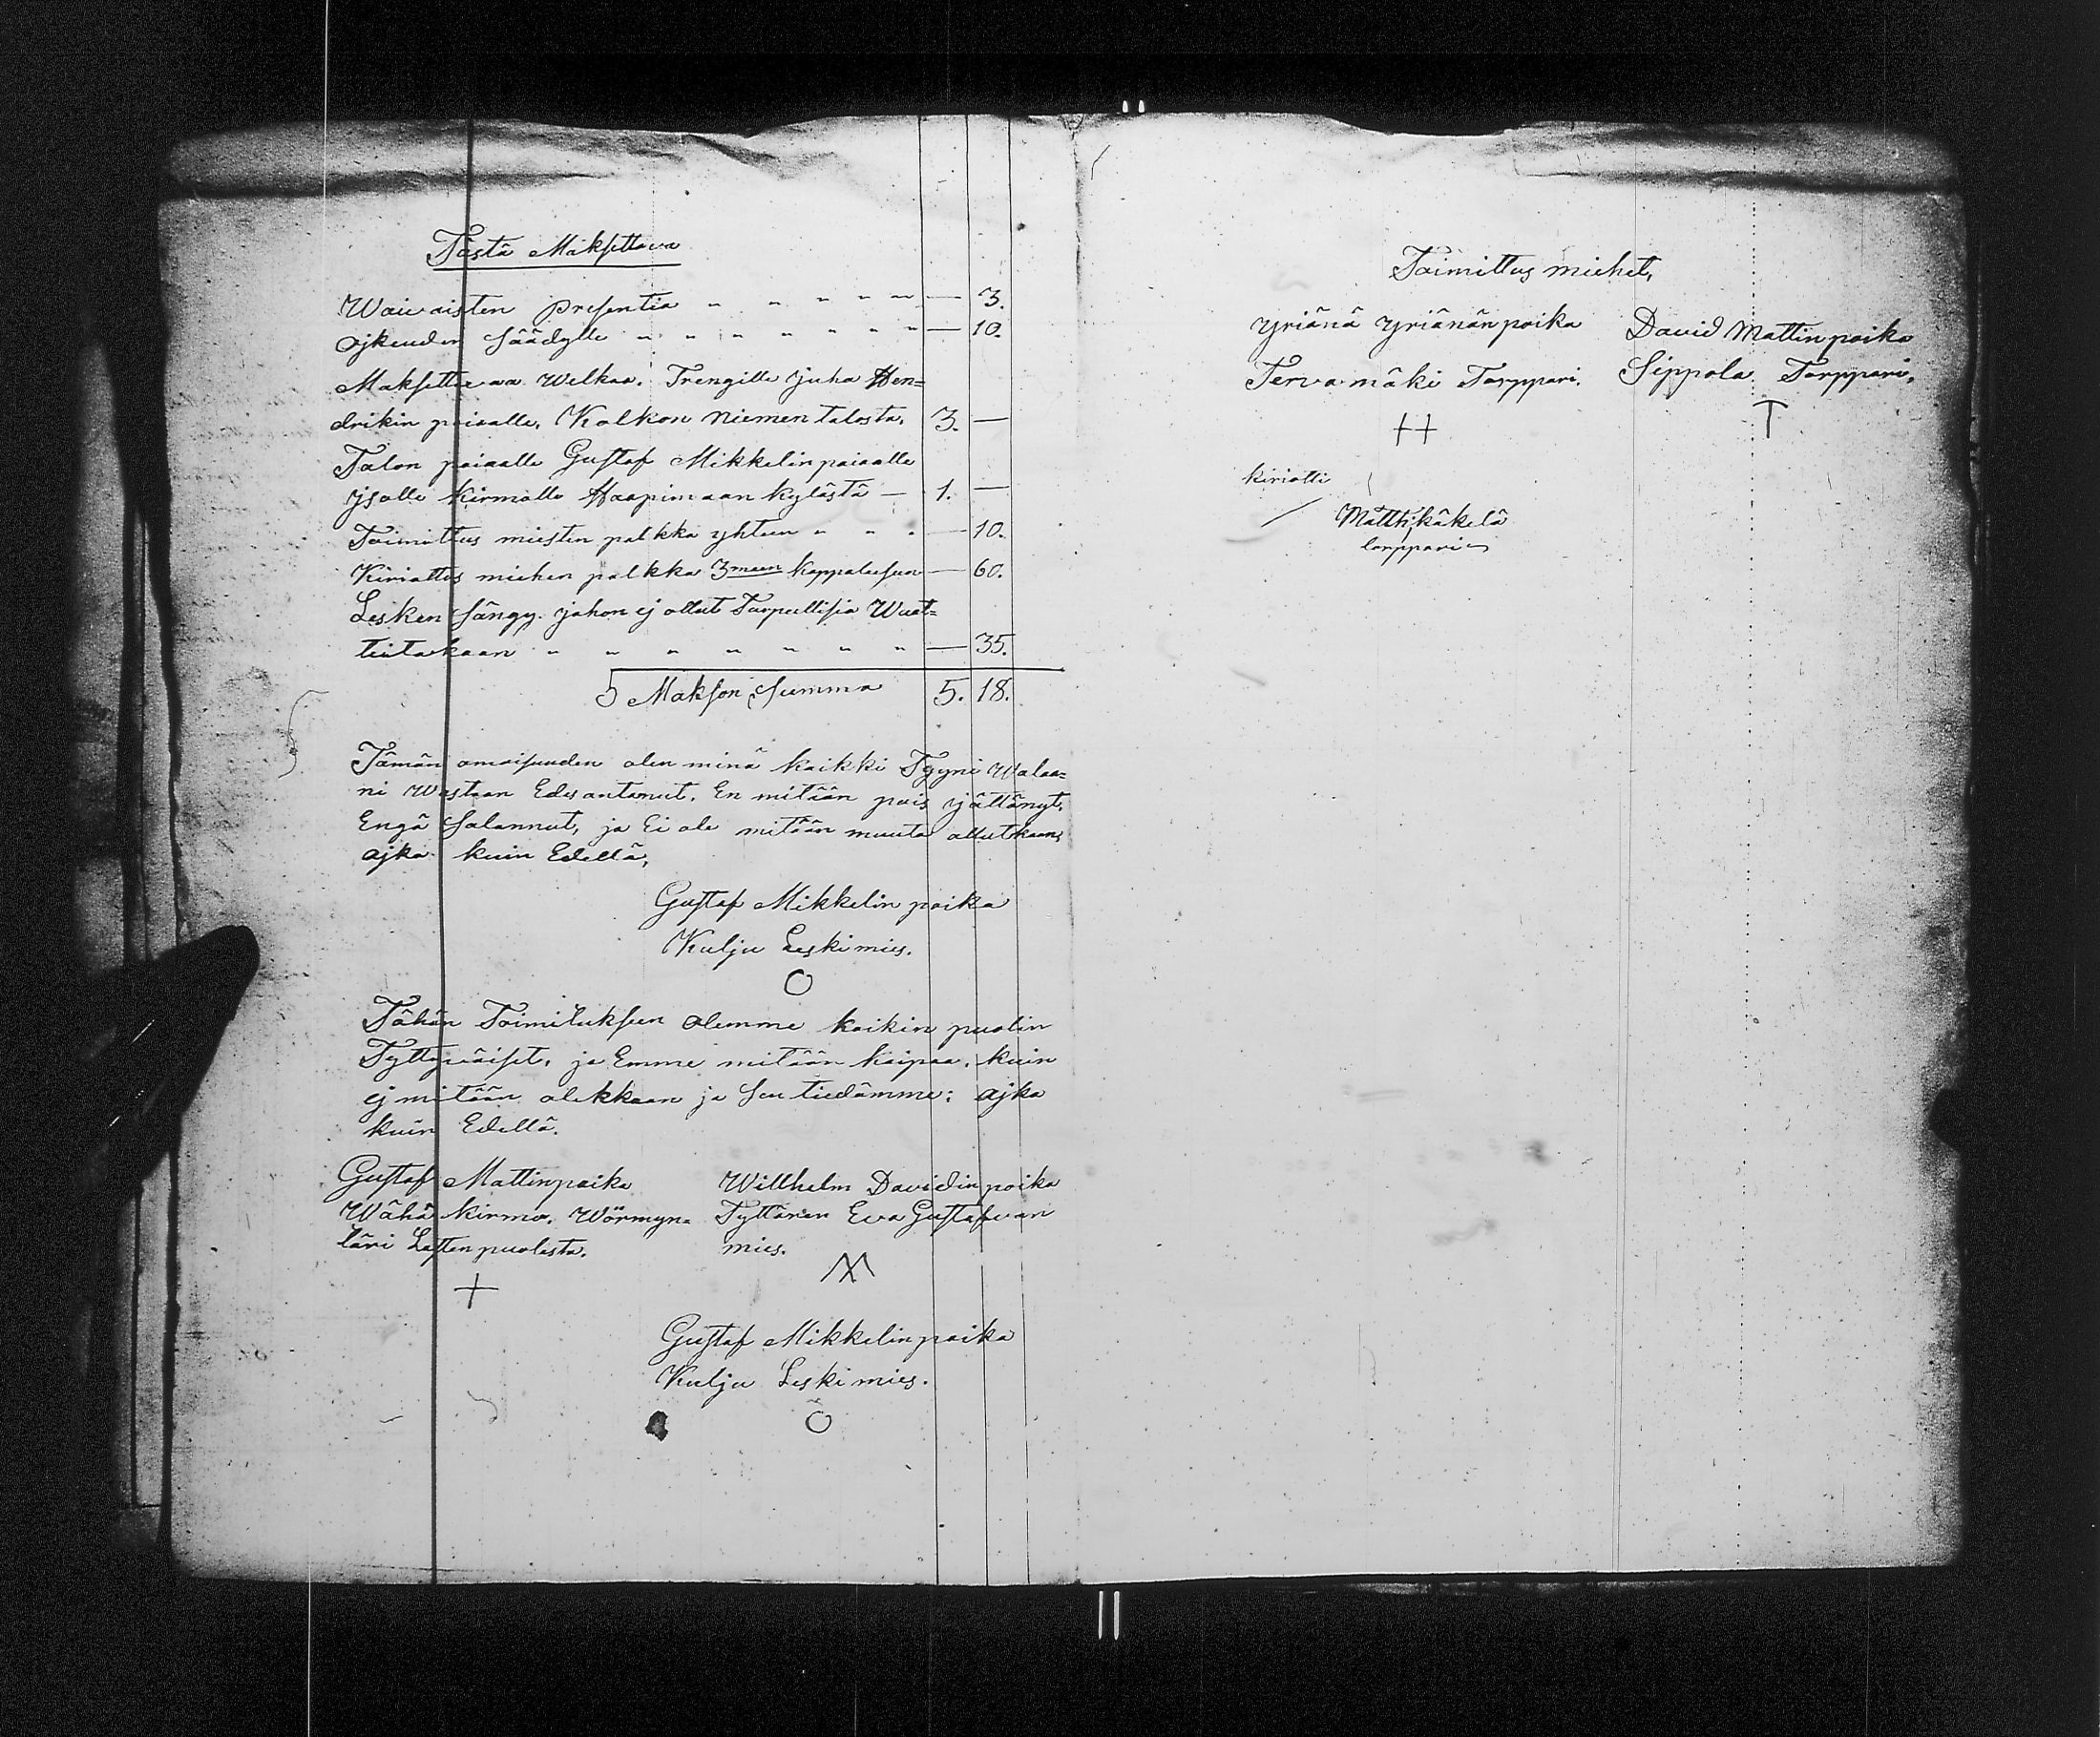 Tästä Maksettava
Waivaisten Presentia " " " " " — 3.
ojkeuden Säädylle " " " " " " " — 10.
Maksettavaa Welkaa. Trengille Juha Hen=
drikin poiaalle, Kolkon Niemen talosta. 3. —
Talon poiaalle Gustaf Mikkelinpoiaalle
Jsolle Kirmolle Haapimaan Kylästä — 1. —
Toimittus miesten palkka yhteen " " " — 10.
Kiriattus miehen palkka 3meen Kappaleesen — 60.
Lesken Sängy johon ej ollut Tarpeellisia Waat=
teitakaan " " " " " " " — 35.
5 Makson Summa 5. 18.
Tämän omaisuuden olen minä kaikki Tyyni Walaa=
ni Wastaan Edesantanut. En mitään pois jättänyt,
Engä Salannut, ja Ei ole mitään muuta ollutkaan,
ajka kuin Edellä,
Gustaf Mikkelin poika
Kulju Leskimies.
O
Tähän Toimitukseen olemme kaikin puolin
Tyttyväiset, ja Emme mitään kaipaa, kuin
ej mitään olekkaan ja Sen tiedämme: ajka
kuin Edellä.
Gustaf Mattinpoika Willhelm Davidin poika
Wähä Kirmo, Wörmyn= Tyttären Eva Gustafvan
täri Lasten puolesta. mies.
+
Gustaf Mikkelinpoika
Kulju Leskimies.
O
Toimittus miehet,
Yriänä Yriänänpoika David Mattinpoika
Tervamäki Torppari. Sippola Torppari,
++ T
kiriotti
Matthi käkelä
torppari